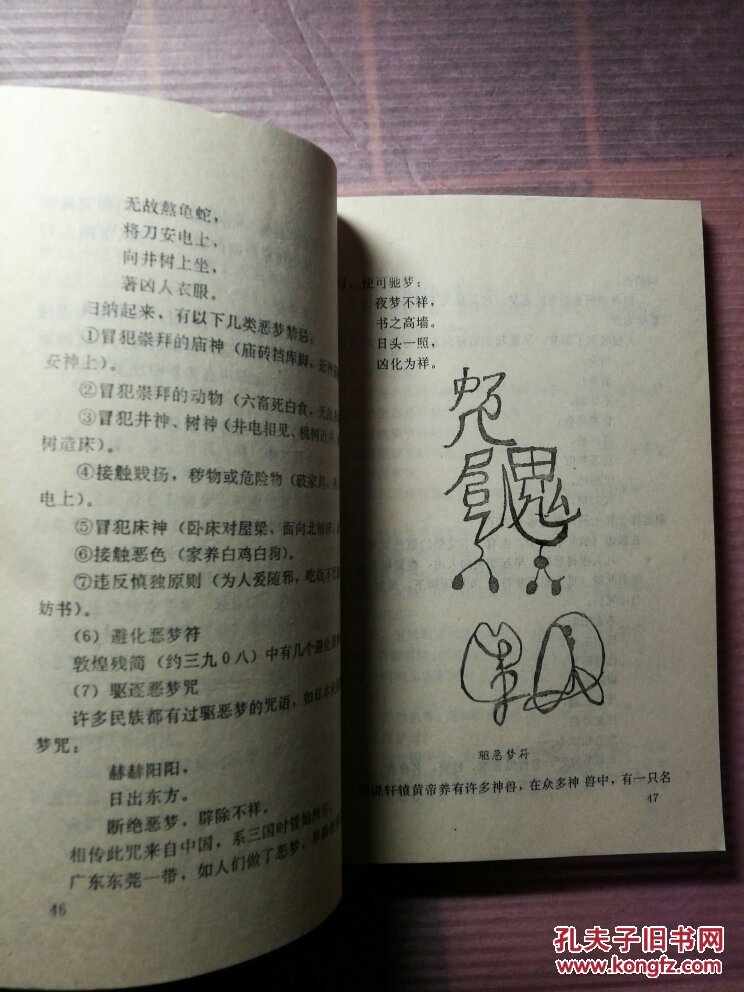 无故熬龟蛇，
将刀安电上，
向井树上坐，
著凶人衣服。
归纳起来，有以下几类恶梦禁忌：
①冒犯崇拜的庙神（庙砖挡库脚，近神
安神上）。
②冒犯崇拜的动物（六畜死白食，无故
③冒犯井神、树神（井电相见、桃树近井、
树造床）。
④接触贱扬，秽物或危险物（破家具、
电上）。
⑤冒犯床神（卧床对屋梁，面向北
⑥接触恶色（家养白鸡白狗）。
⑦违反慎独原则（为人爱随邪，吃饭不
妨书）。
（6）避化恶梦符
敦煌残简（约三九０八）中有几个避化恶
（7）驱逐恶梦咒
许多民族都有过驱恶梦的咒语，如日本民
梦咒：
赫赫阳阳，
日出东方。
断绝恶梦，辟除不祥。
相传此咒来自中国，系三国时管始所作。
广东东莞一带，如人们做了恶梦，早
46
写，便可驰梦：
夜梦不祥，
书之高墙。
日头一照，
凶化为祥。
驱恶梦符
说轩辕黄帝养有许多神兽，在众多神 兽中，有一只名
47
孔夫子旧书网
www.kongfz.com